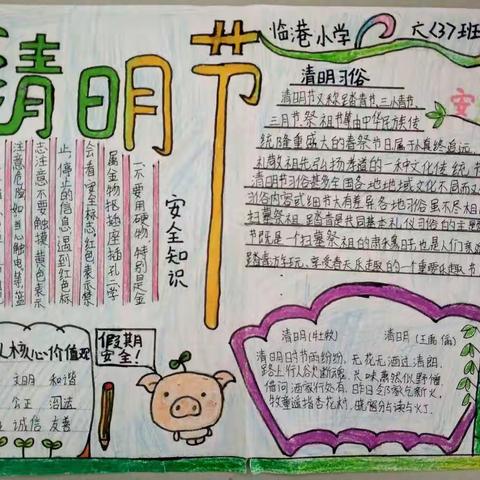 清明节
临港小学
六(3)班
安
清明习俗
清明节又称踏青节、三小清节、
三月节、祭祖节
统隆重盛大的春祭节日属于
礼敬祖先弘扬孝道的一种文化传统节
清明节习俗甚多全国各地地域文化不同而又
习俗内容或细节上有差异各地习俗虽不尽相
扫墓祭祖、踏青是共同基本礼仪习俗的主题
节既是一个扫墓祭祖的肃穆节日也是人们亲近
踏青游玩、享受春天乐趣的一个重要乐趣节
安全知识
一、不要用硬物,特别是金
属金物捂插座插孔二、学
会看安全标志,红色表示禁
止、停止的信息,遇到红色标
志注意不要触摸,黄色表示
注意危险,如当心触电等,蓝
核心价值观
文明 和谐
公正 法
诚信 友善
假期
安全!
清明(杜牧)
清明时节雨纷纷,
路上行人欲断魂。
借问酒家何处有,
牧童遥指杏花村。
清明(王禹偁)
无花无酒过清明,
兴味萧然似野僧。
昨日邻家乞新火,
晓窗分与读书灯。